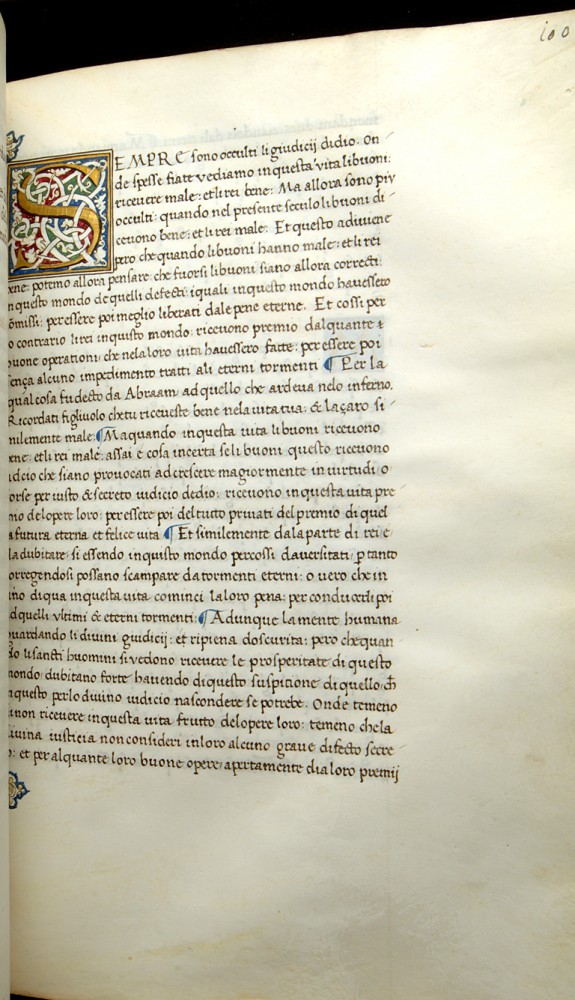 100
SEMPRE sono occulti li giudicij didio. On
de spesse fiate vediamo in questa vita li buoni:
riceuere male: et li rei bene: Ma allora sono piu
occulti: quando nel presente seculo li buoni di
ceuono bene: et li rei male: Et questo adiuiene
pero che quando li buoni hanno male: et li rei
ene: potemo allora pensare: che fuorsi li buoni siano allora correcti
nquesto mondo de quelli defecti: iquali inquesto mondo hauessero
omissi: per essere poi meglio liberati dale pene eterne. Et cossi per
o contrario li rei inquisto mondo: riceuono premio dalquante
buone operationi: che nela loro vita hauessero fatte: per essere poi
ença alcuno impedimento tratti ali eterni tormenti ¶ Per la
qual cosa fu decto da Abraam ad quello che ardeua nelo inferno.
Ricordati figliuolo che tu riceueste bene nela uita tua: & laçaro si
milemente male: ¶ Ma quando inquesta uita li buoni riceuono
ene: et li rei male: assai e cosa incerta se li buoni questo riceuono
idcio che siano prouocati ad crescere magiormente in uirtudi o
orse per iusto & secreto iudicio de dio: riceuono in questa uita pre
mio de lopere loro: per essere poi del tutto priuati del premio di quel
a futura eterna et felice uita ¶ Et similemente dala parte di rei e
la dubitare: si essendo inquisto mondo percossi da uersitati: ꝑ tanto
orregendosi possano scampare da tormenti eterni: o uero che in
ino di qua inquesta uita cominci la loro pena: per conducerli poi
ad quelli vltimi & eterni tormenti: ¶ Adunque la mente humana
guardando li diuini giudicij: et ripiena doscurita: pero che quan
do li sancti huomini si vedono riceuere le prosperitate di questo
mondo: dubitano forte hauendo di questo suspicione di quello: ch̄
aquesto per lo diuino iudicio nascondere se potrebe. Onde temeno
anon riceuere inquesta uita frutto de lopere loro: temeno che la
iuina iusticia non consideri in loro alcuno graue difecto secre
o: et per alquante loro buone opere: apertamente dia loro premij